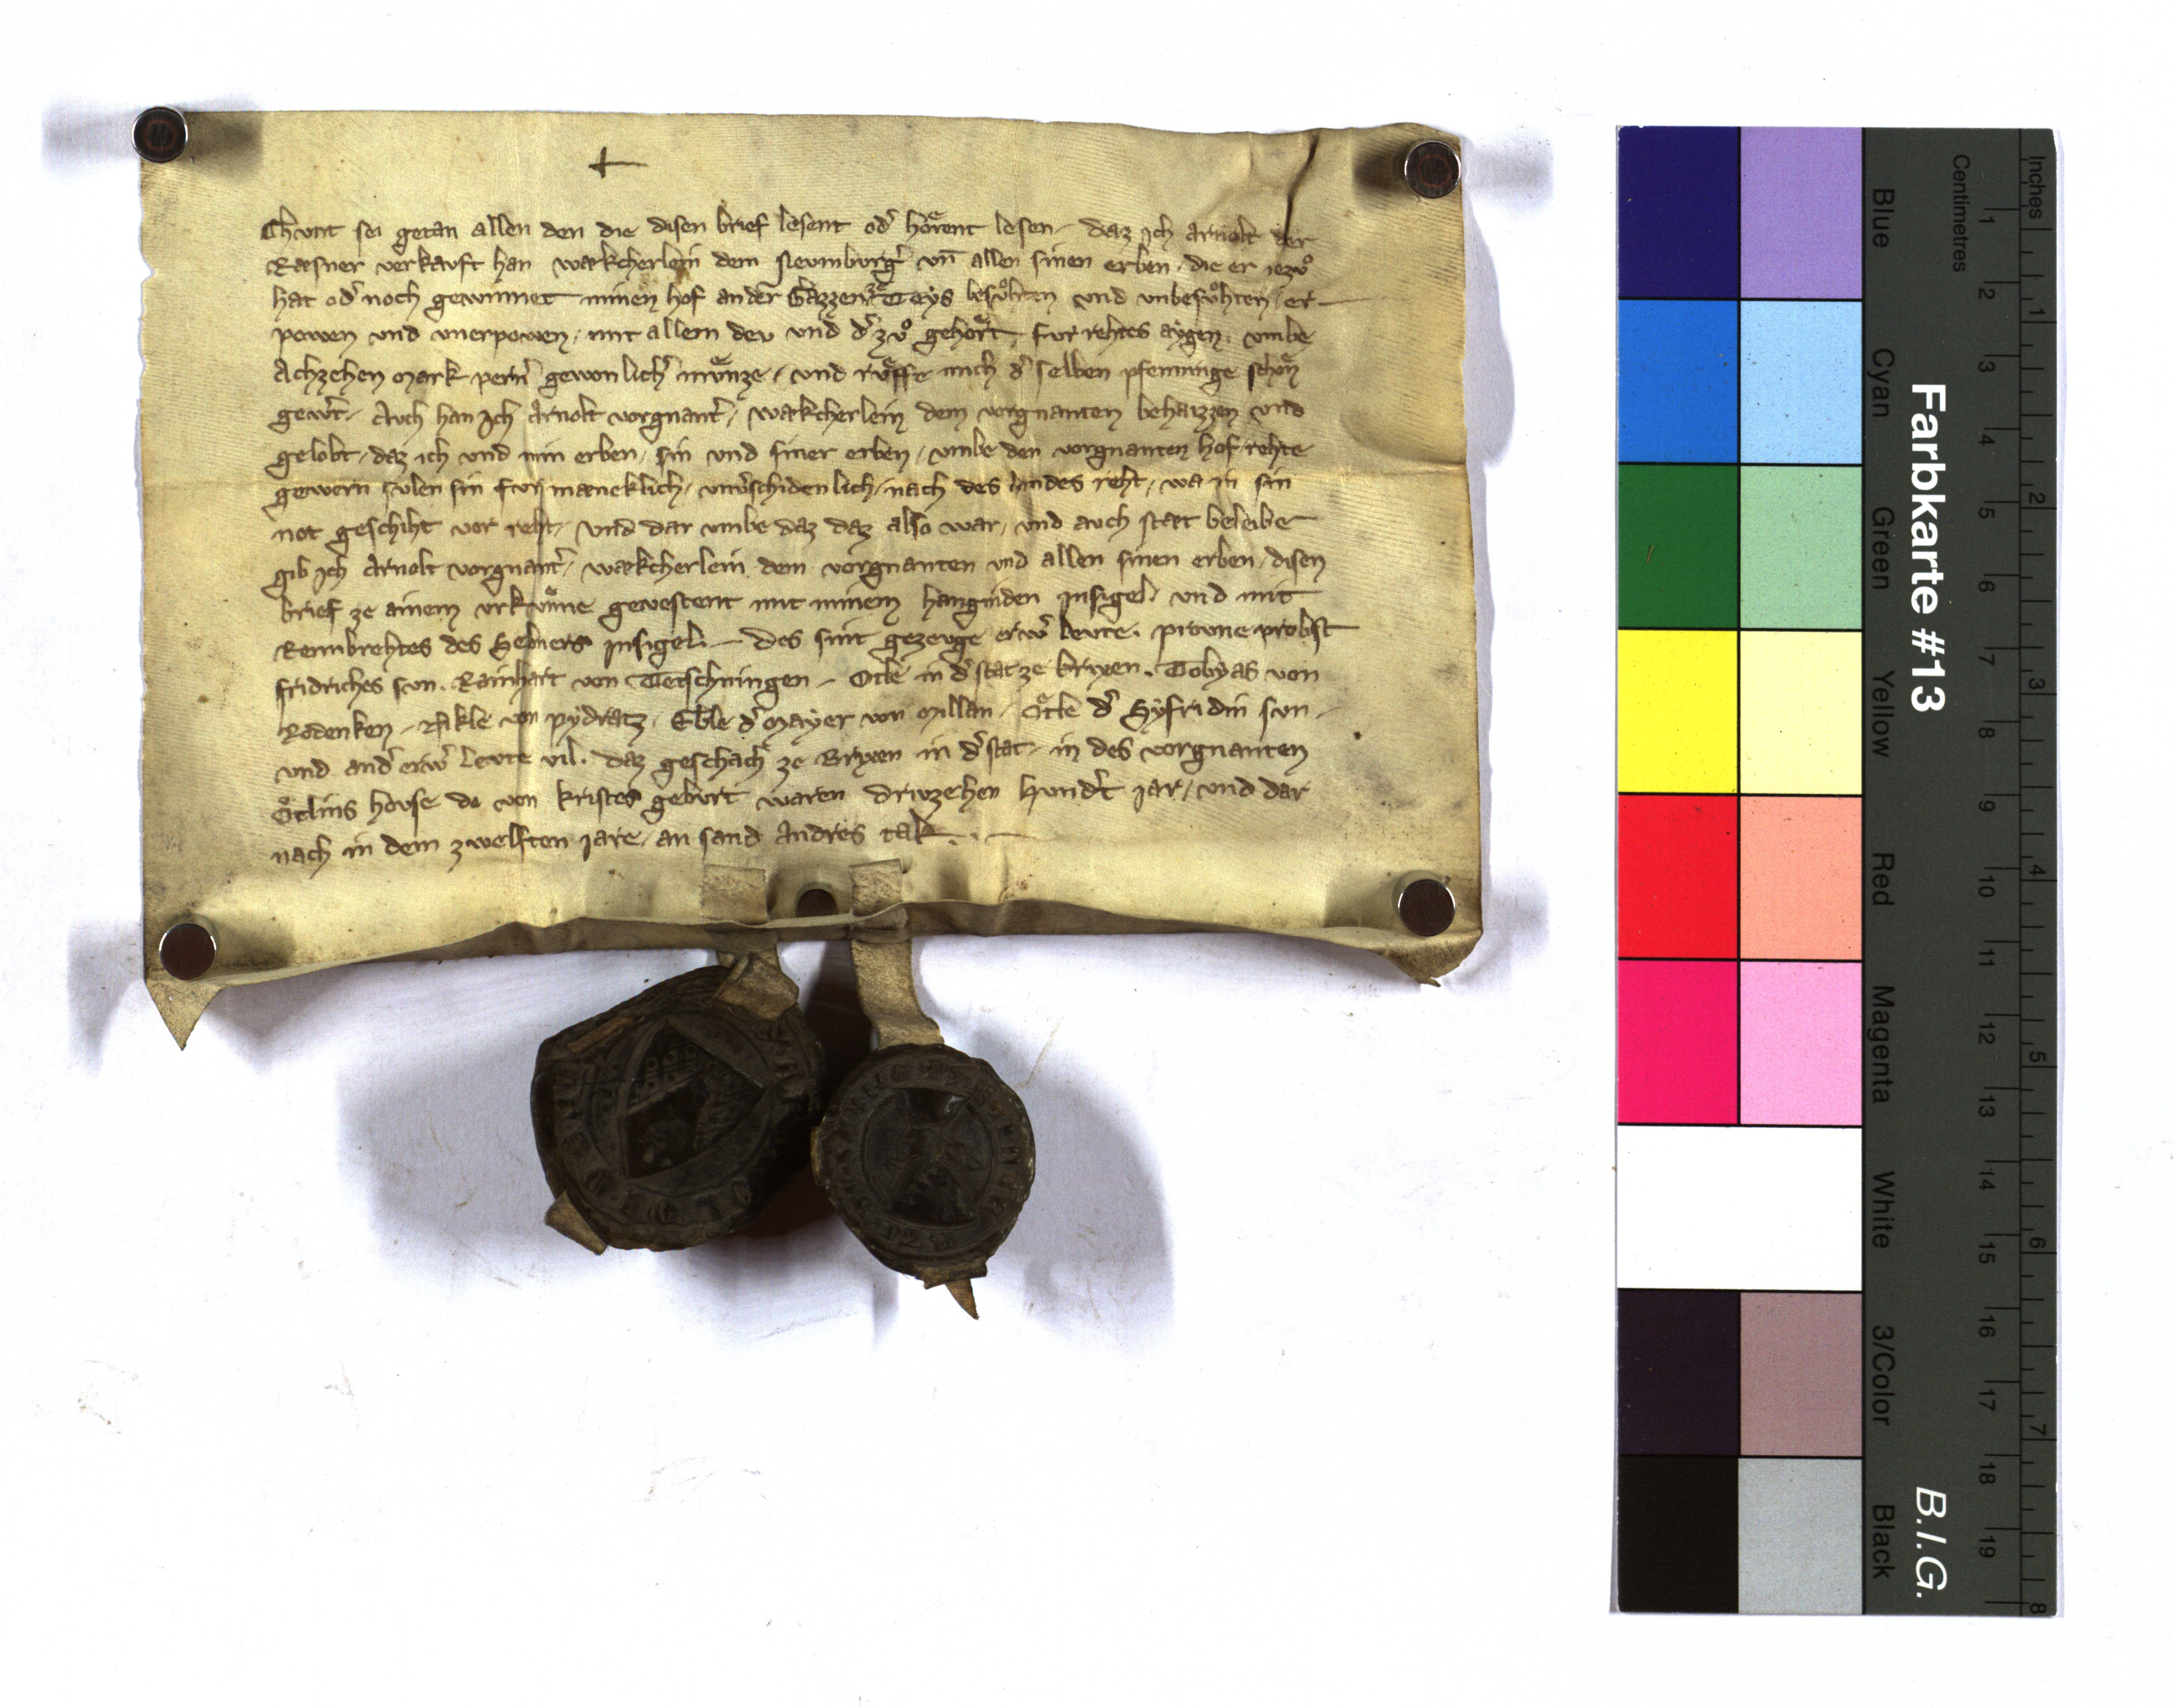 Chvnt sei getan allen den die disen brief lesent od͛ hoͤrent lesen / daz ich Arnolt der
Rasner verkavft han wækcherlein dem Nevmburg͛ vn̄ allen sinen erben / die er iezvͦ
hat od͛ noch gewinnet minen hof an der Gazzen zeTeys besvͦhten vnd vnbesvͦhten / er
powen vnd vnerpowen / mit allem dev vnd d͛ zvͦ gehoͤrt / fvr rehtes aygen / vmbe
Achzehen mark pern͛ gewonlich͛ mvͤnze / vnd rvͤffe mich d͛ selben pfenninge schoͤn
gew͛t / Avch han Ich Arnolt vorgnant͛ / wækcherlein dem vorgnanten behaizzen vnd
gelobt / daz ich vnd min erben / sin vnd siner erben / vmbe den vorgnanten hof rehte
gewern svlen sin fvr mæneklich / vnv͛schidenlich / nach des landes reht / wa in sin
not geschiht vor reht / Vnd dar vmbe daz daz also war / vnd avch stæt beleibe
gib Ich Arnolt vorgnant͛ / wækcherlein dem vorgnanten vnd allen sinen erben / disen
brief ze ainem vrkvͤnne gevestent mit minem hanginden Insigel / vnd mit
Rembrehtes des Sebners Insigel / des sint gezevge erw͛ levte / Pitvne probst
fridriches svn / Rainhart von Tetschningen / Otle in d͛ stat ze Brixen / Tobyas von
Rodenken / Nikle von Pydratz / Eble d͛ Mayer von Millan / Oͤtle d͛ Syfridin svn /
vnd and͛ erw͛ levte vil / daz geschach ze Brixen in d͛ stat / in des vorgnanten
Oͤtlins hovse do von Kristes gebvrt waren drivzehen Hvnd͛t iar / vnd dar
nach in dem zwelften jare / an sand Andres tak
Farbkarte #13
B.I.G.
Centimetres
Inches
Blue
Cyan
Green
Yellow
Red
Magenta
White
3/Color
Black
1 2 3 4 5 6 7 8 9 10 11 12 13 14 15 16 17 18 19
1 2 3 4 5 6 7 8